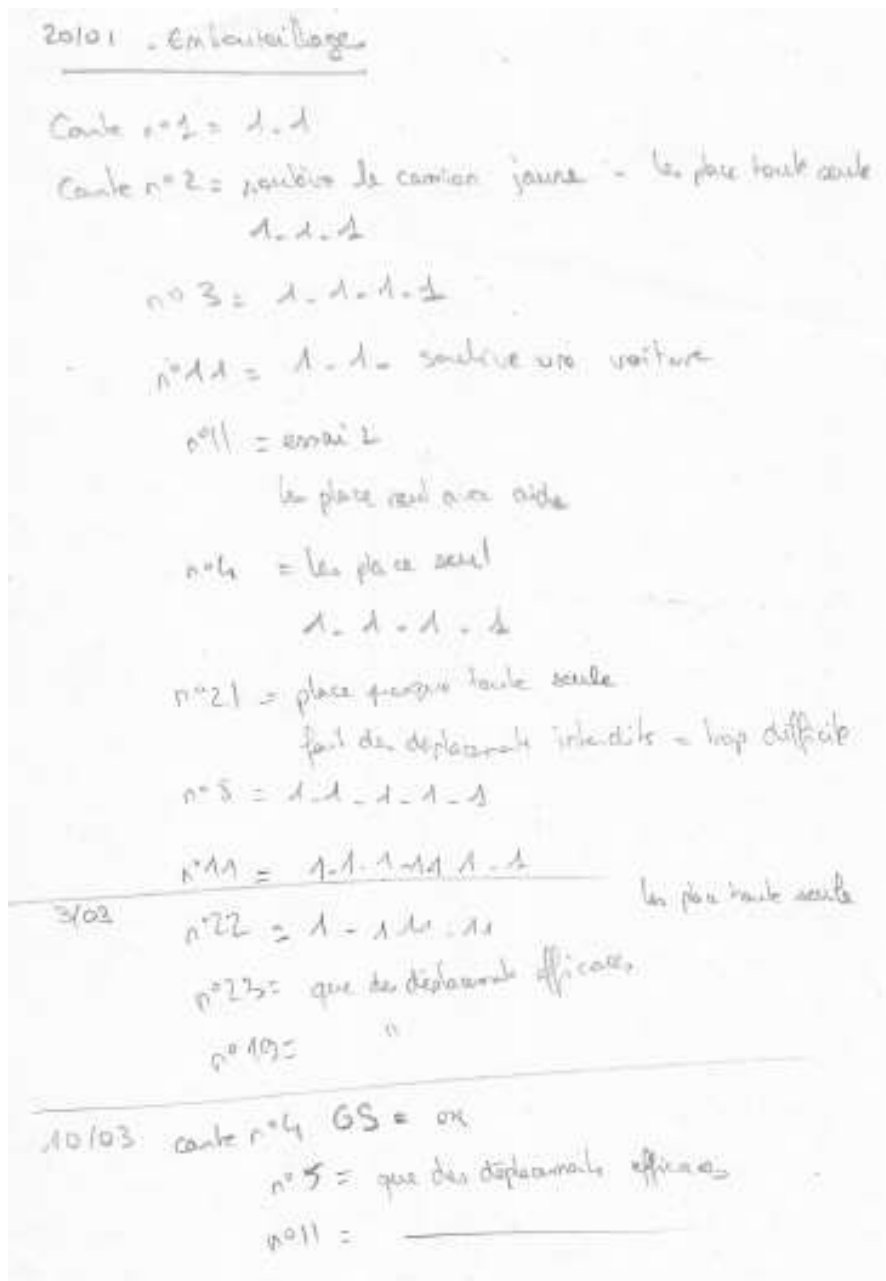 20/01 - Embouteillage
Carte n°1 = 1-1
Carte n°2 = soulève le camion jaune - les place toute seule
1-1-1
n°3 = 1-1-1-1
n°11 = 1-1- soulève une voiture
n°11 = essai 2
les place seul avec aide
n°4 = les place seul
1-1-1-1
n°21 = place presque toute seule
fait des déplacements interdits = trop difficile
n°5 = 1-1-1-1-1
n°11 = 1-1-1-11 1-1
les place toute seule
3/03 n°22 = 1-1 1-11
n°23 = que des déplacements efficaces
n°19 = "
10/03 carte n°4 GS = ok
n°5 = que des déplacements efficaces
n°11 =